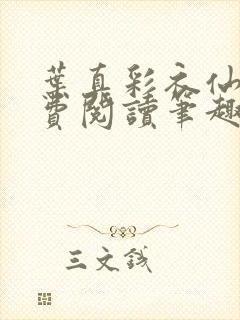 葉真彩衣仙
費閱讀筆趣
三文錢